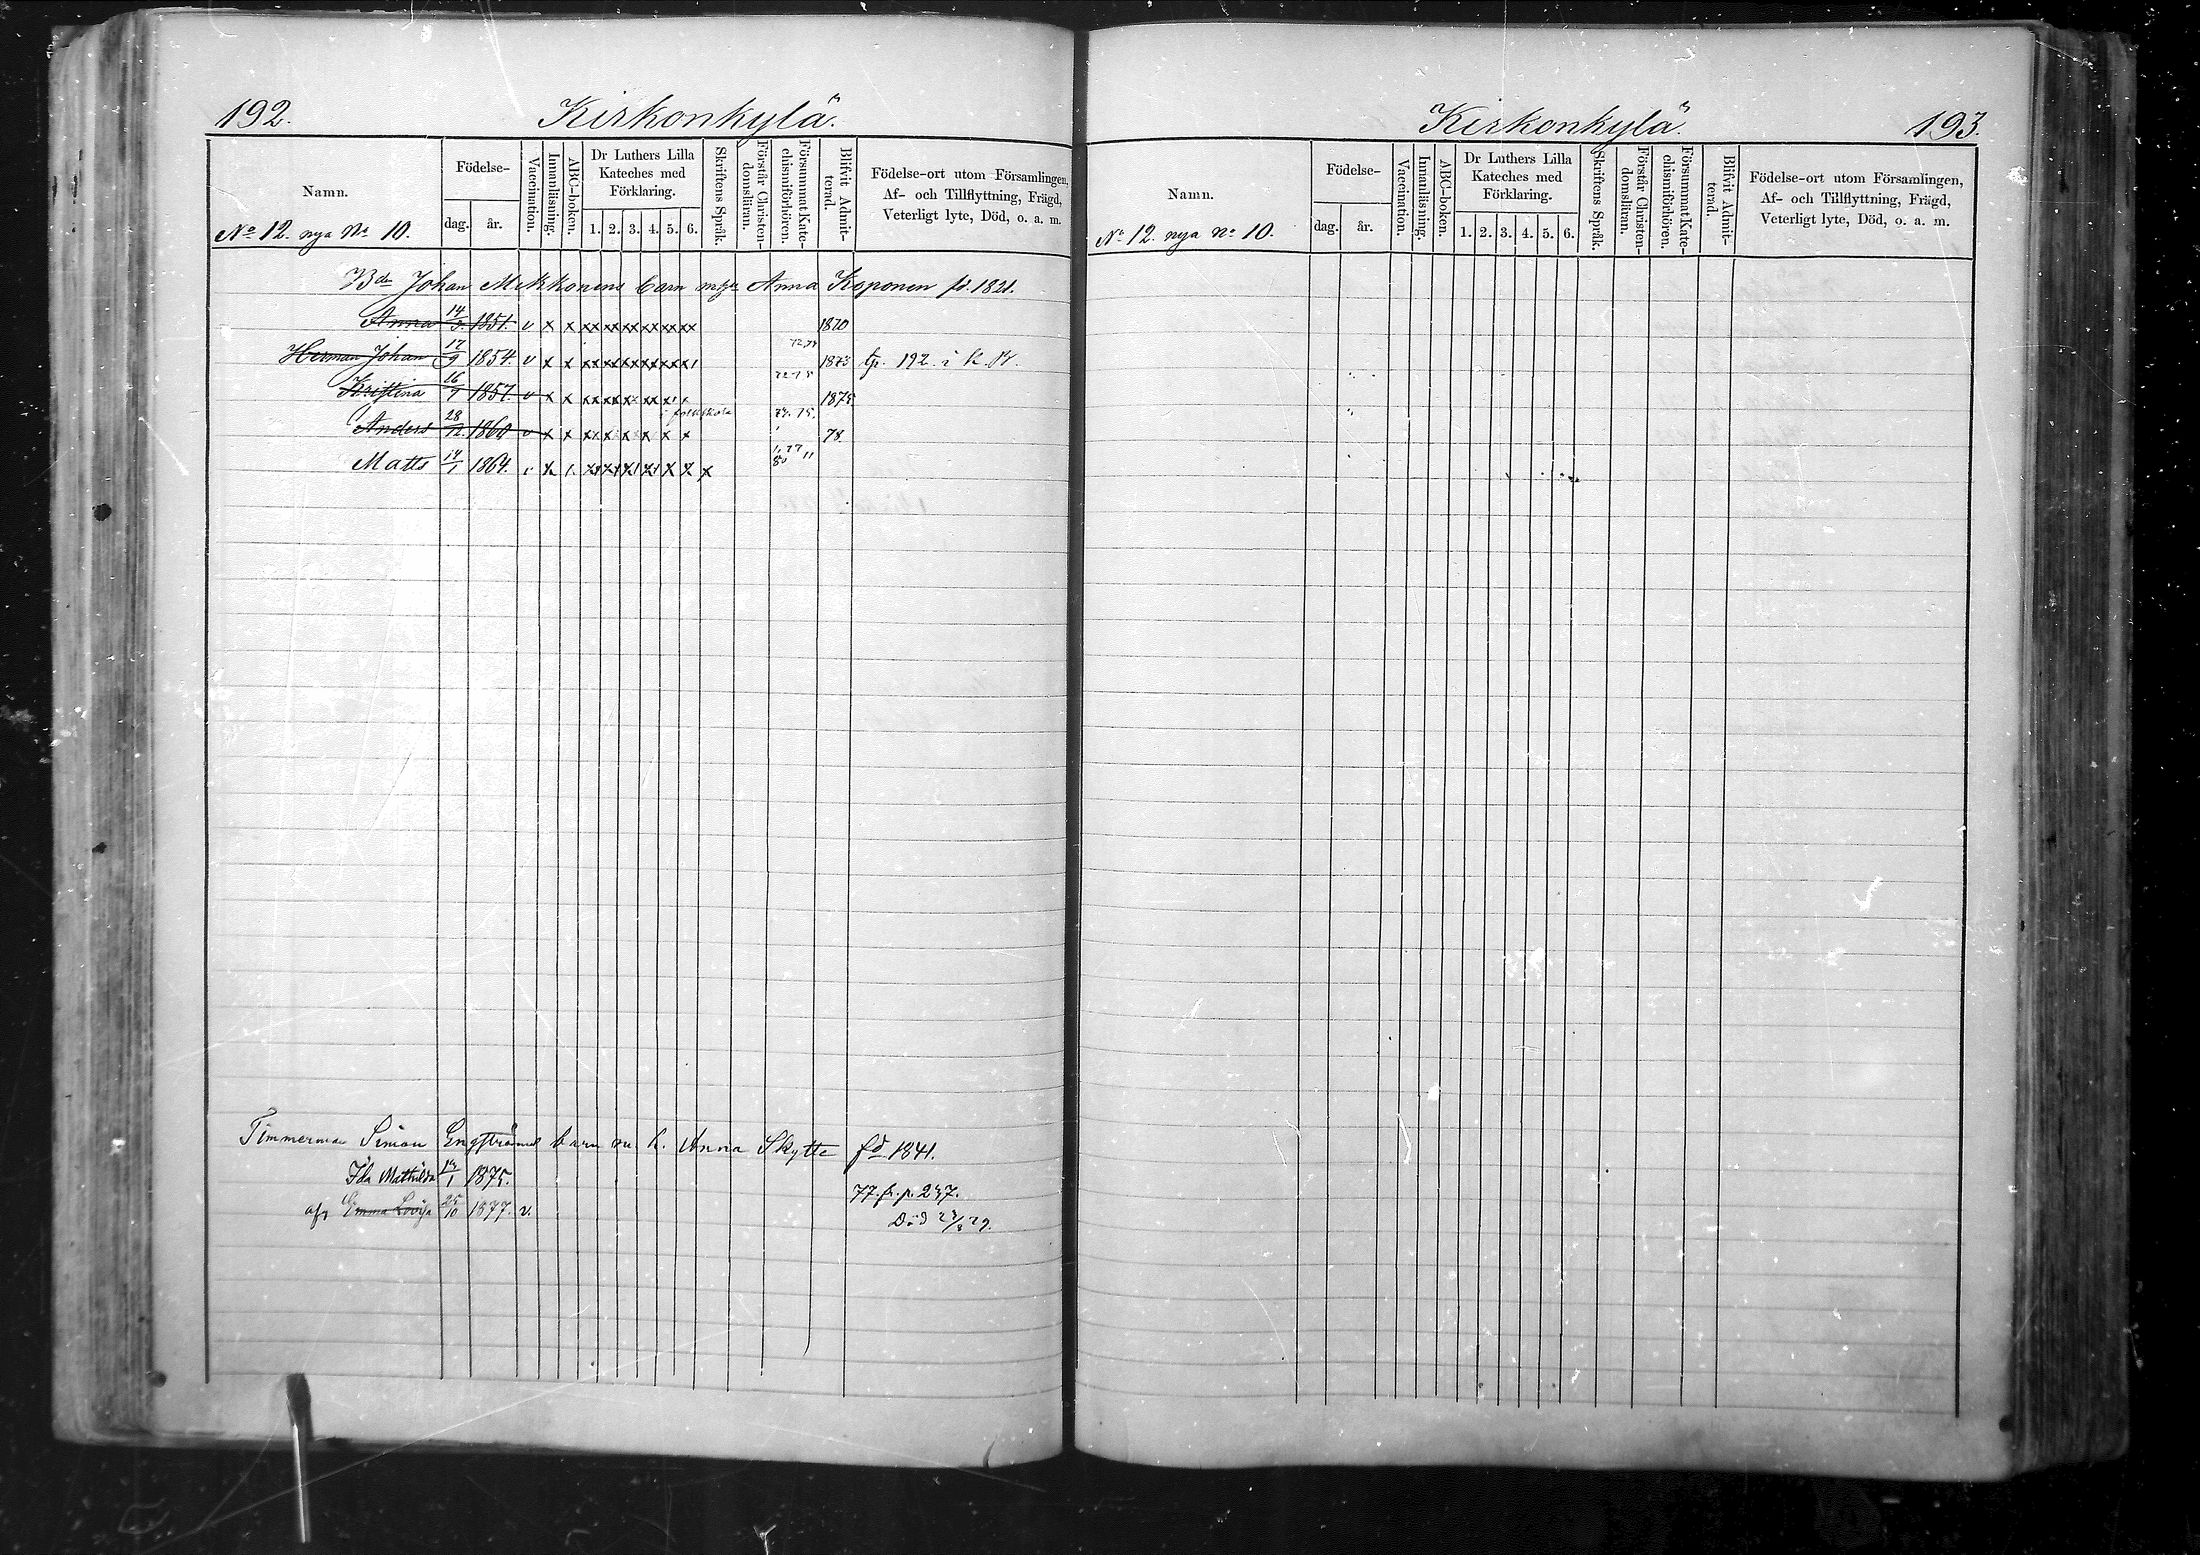 192.
Kirkonkylä.
Namn.
Födelse-
dag.
år.
Vaccination.
Innanläsning.
ABC-boken.
Dr Luthers Lilla
Kateches med
Förklaring.
1. 2. 3. 4. 5. 6.
Skriftens Språk.
Förstår Christen-
domsläran.
Försummat Kate-
chismiförhören.
Blifvit Admit-
terad.
Födelse-ort utom Församlingen,
Af- och Tillflyttning, Frägd,
Veterligt lyte, Död, o. a. m.
No 12. nya No 10.
Bde Johan Mikkonens barn Anna Koponen fd. 1821.
Anna 14/3. 1851. v x x xx xx xx xx xx xx 1870
72,74
Herman Johan 17/9 1854. v x x 1873 tp. 192. i k. B.
Kristina 1857. v x x 1875
i folkskola 74. 75.
Anders 28/12. 1860 v x x x x x x 78
Matts 14/1 1864.
Timmerman Simon Engströms barn m. h. Anna Skytte fd. 1841.
Ida Mathilda 1875.
77. fr. p. 237.
afs Emma Lovisa 25/10 1877. v. Död
Kirkonkylä.
193.
Namn.
Födelse-
dag.
år.
Vaccination.
Innanläsning.
ABC-boken.
Dr Luthers Lilla
Kateches med
Förklaring.
1. 2. 3. 4. 5. 6.
Skriftens Språk.
Förstår Christen-
domsläran.
Försummat Kate-
chismiförhören.
Blifvit Admit-
terad.
Födelse-ort utom Församlingen,
Af- och Tillflyttning, Frägd,
Veterligt lyte, Död, o. a. m.
No 12. nya No 10.